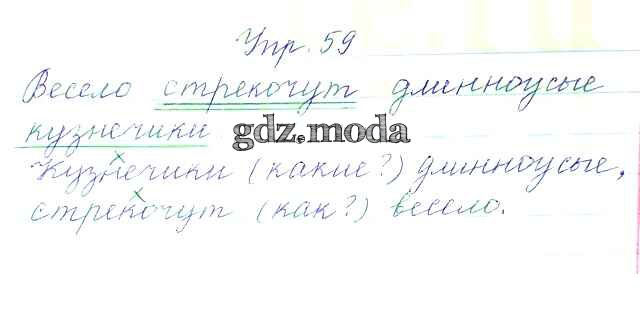 Упр. 59
Весело стрекочут длинноусые
кузнечики.
gdz.moda
Кузнечики (какие?) длинноусые,
стрекочут (как?) весело.